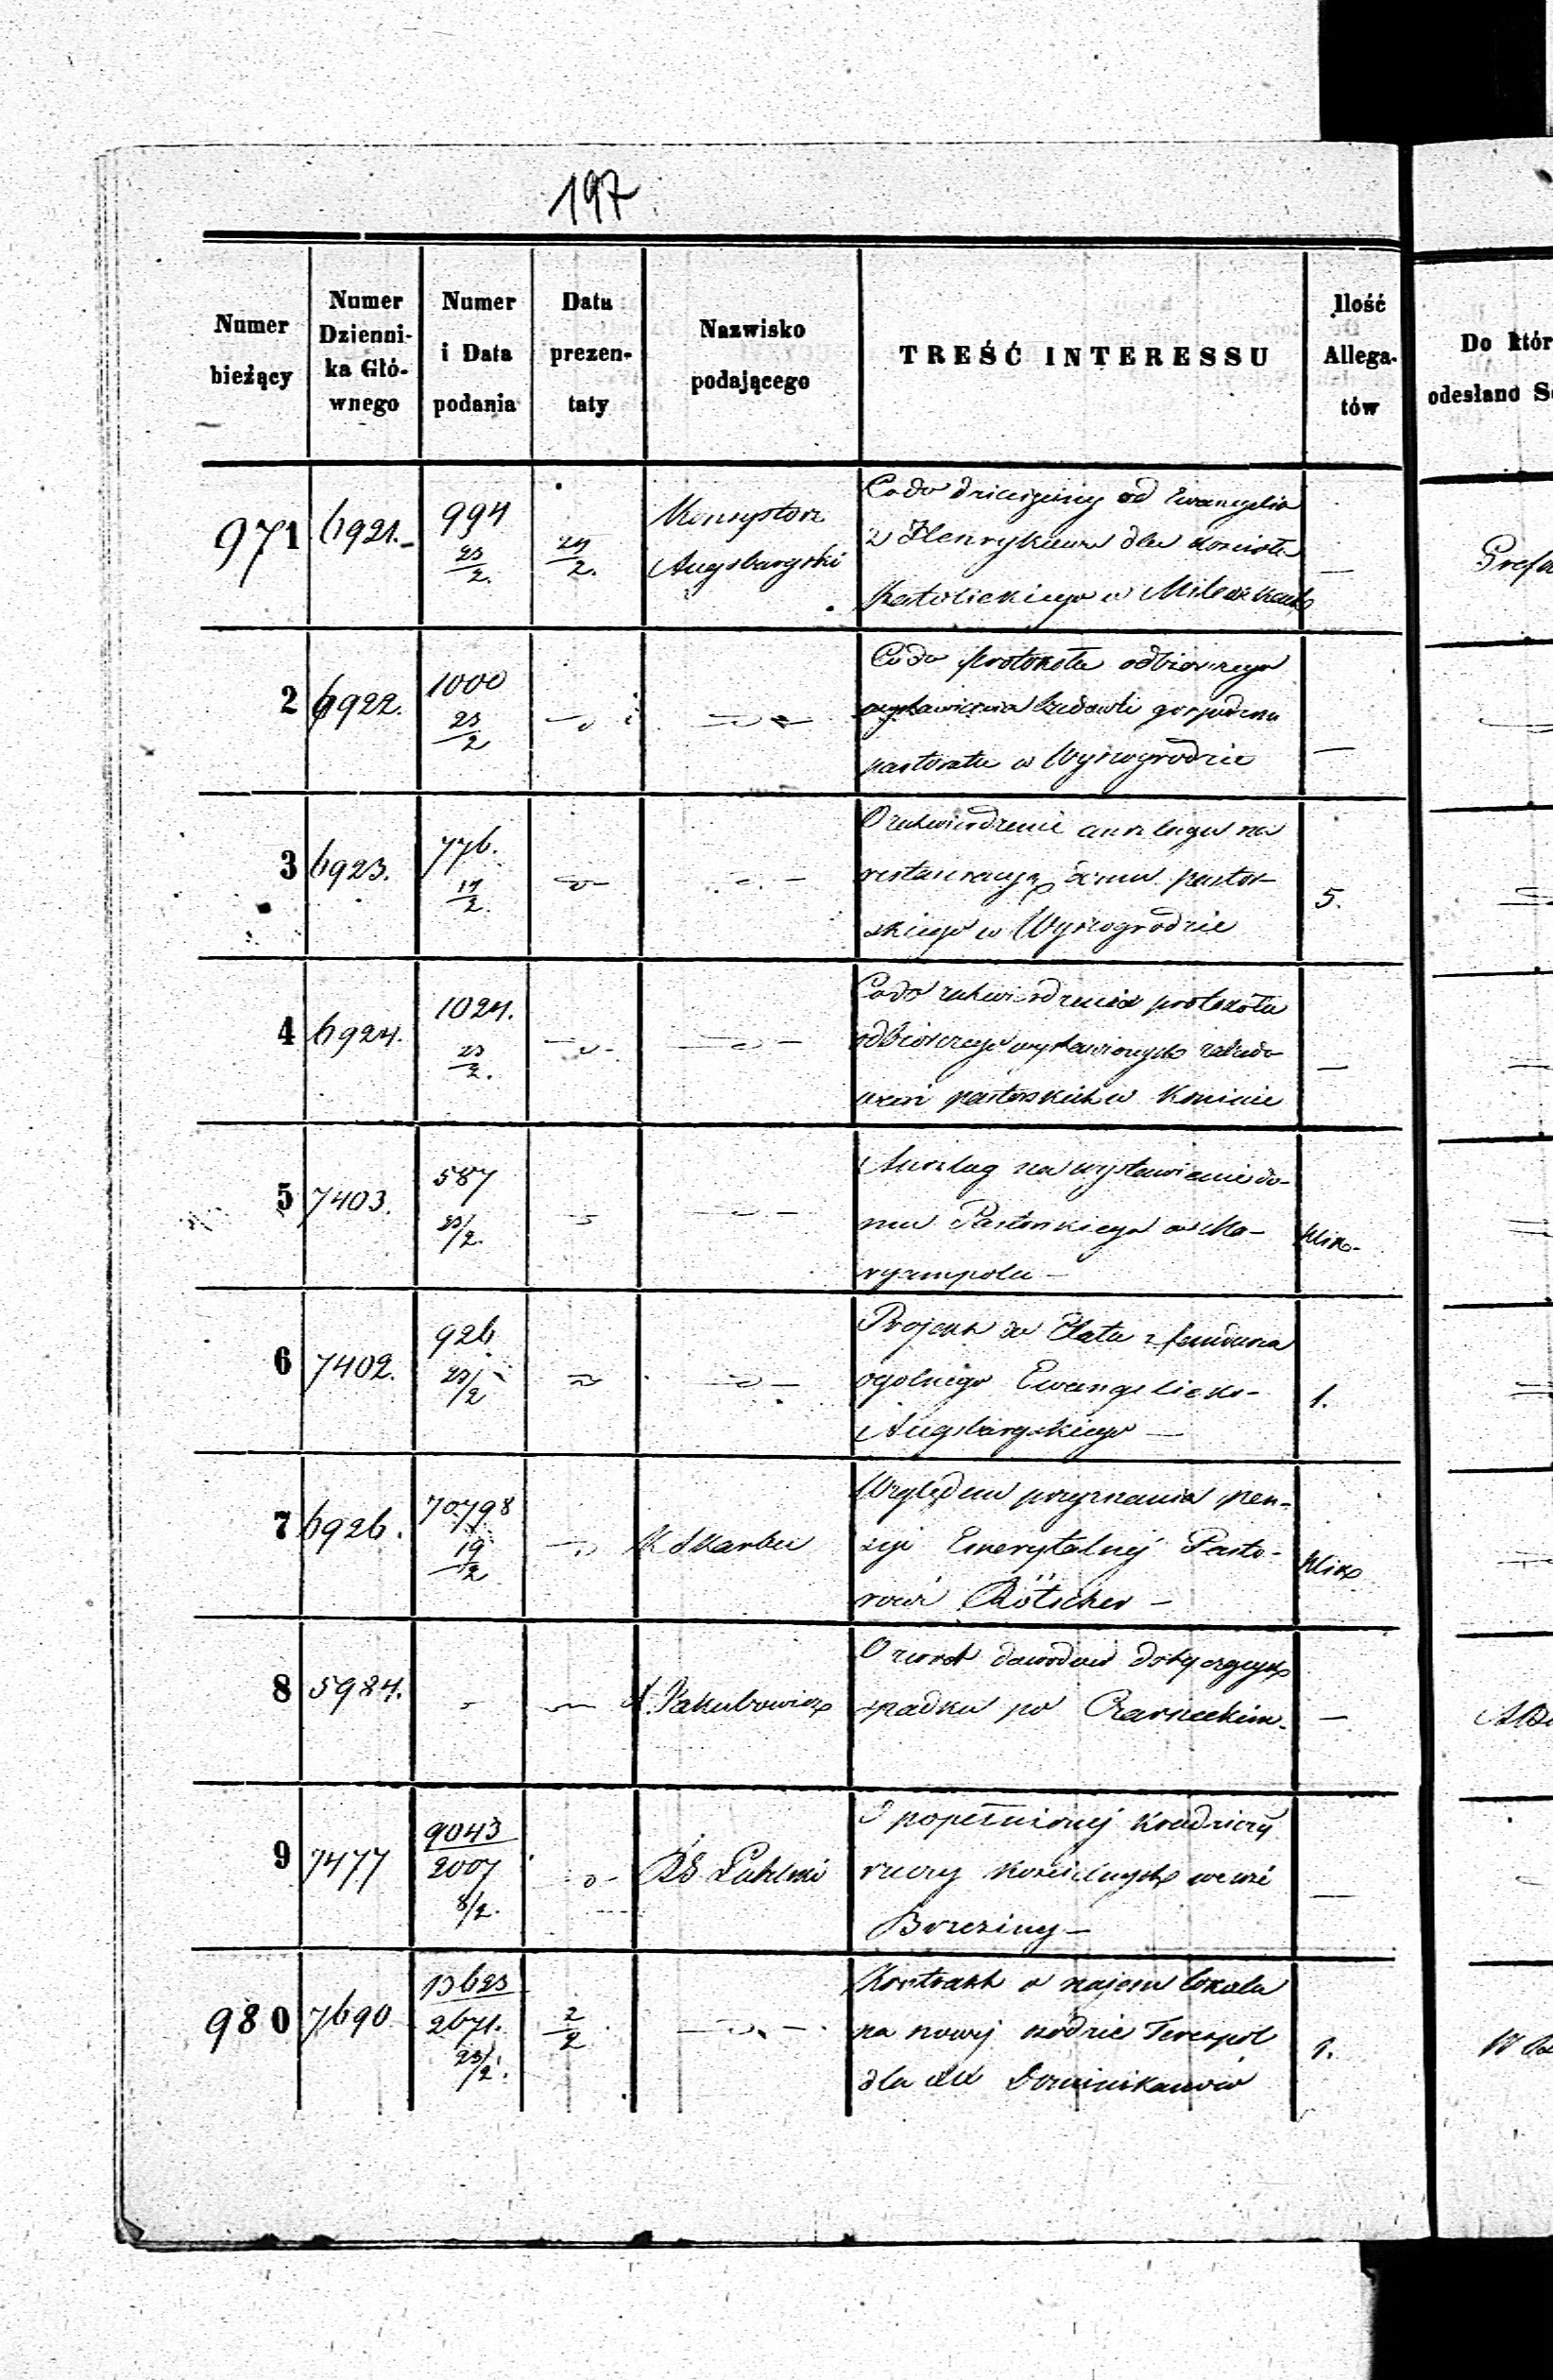 197
Numer bieżący | Numer Dzienni- ka Głó- wnego | Numer i Data podania | Data prezen- taty | Nazwisko podającego | TREŚĆ INTERESSU | Ilość Allega- tów | Do któr odesłano S
971 | 6921. | 994 23/2. | 24/2. | Konsystorz Augsburgski | Co do dziesięciny od Ewangelia
z Henrykowa dla Kościoła | —
Katolickiego w Mileszkach
2 | 6922. | 1000 23/2 | Co do protokołu odbiorczego
wystawienia budowli gospodar.
pastoratu w Wyszogrodzie | —
3 | 6923. | 776. 17/2. | O zatwierdzenie anszlagu na
restauracyą domu pastor-
skiego w Wyszogrodzie | 5.
4 | 6924. | 1024. 23/2. | Co do zatwierdzenia protokółu
odbiorczego wystawionych zabudo-
wań pastorskich w Koninie | —
5 | 7403. | 587 23/2. | Anszlag na wystawienie do-
mu Pastorskiego w Ma-
ryampolu — | plik.
6 | 7402. | 926. 23/2 | Projekt do Etatu z funduszu
ogólnego Ewangelicko-
Augsburgskiego — | 1.
7 | 6926. | 70798 19/2 | K Skarbu | Względem przyznania pen-
syi Emerytalnéj Pasto-
rowi Rötscher — | plik
8 | 5984. | Jakubowicz | O zwrot dowodów dotyczących
spadku po Czarneckim. | —
9 | 7477 | 9043 2007 8/2. | O popełnionéj kradzieży
rzeczy kościelnych we wsi | —
Brzeziny —
980 | 7690 | 13623 2671. 23/2. | 2/2 | Kontrakt o najem lokalu
na nowéj Terespol | 1.
dla XX Dominikanów